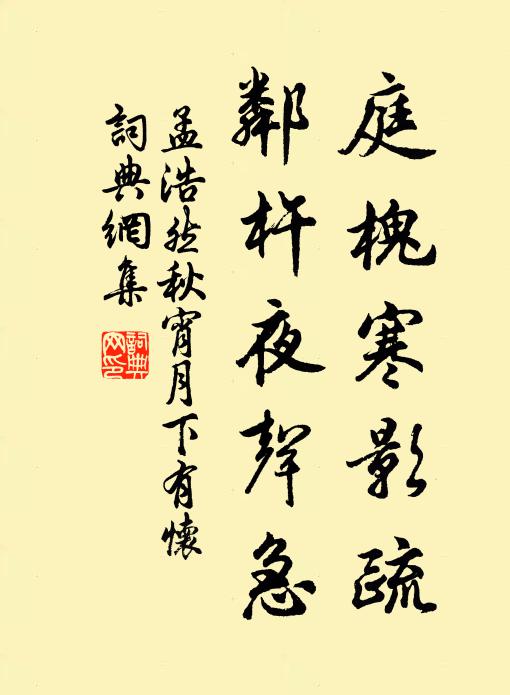 庭槐寒影疏
鄰杵夜聲急
孟浩然秋宵月下有懷
詞典網集
詞典网印